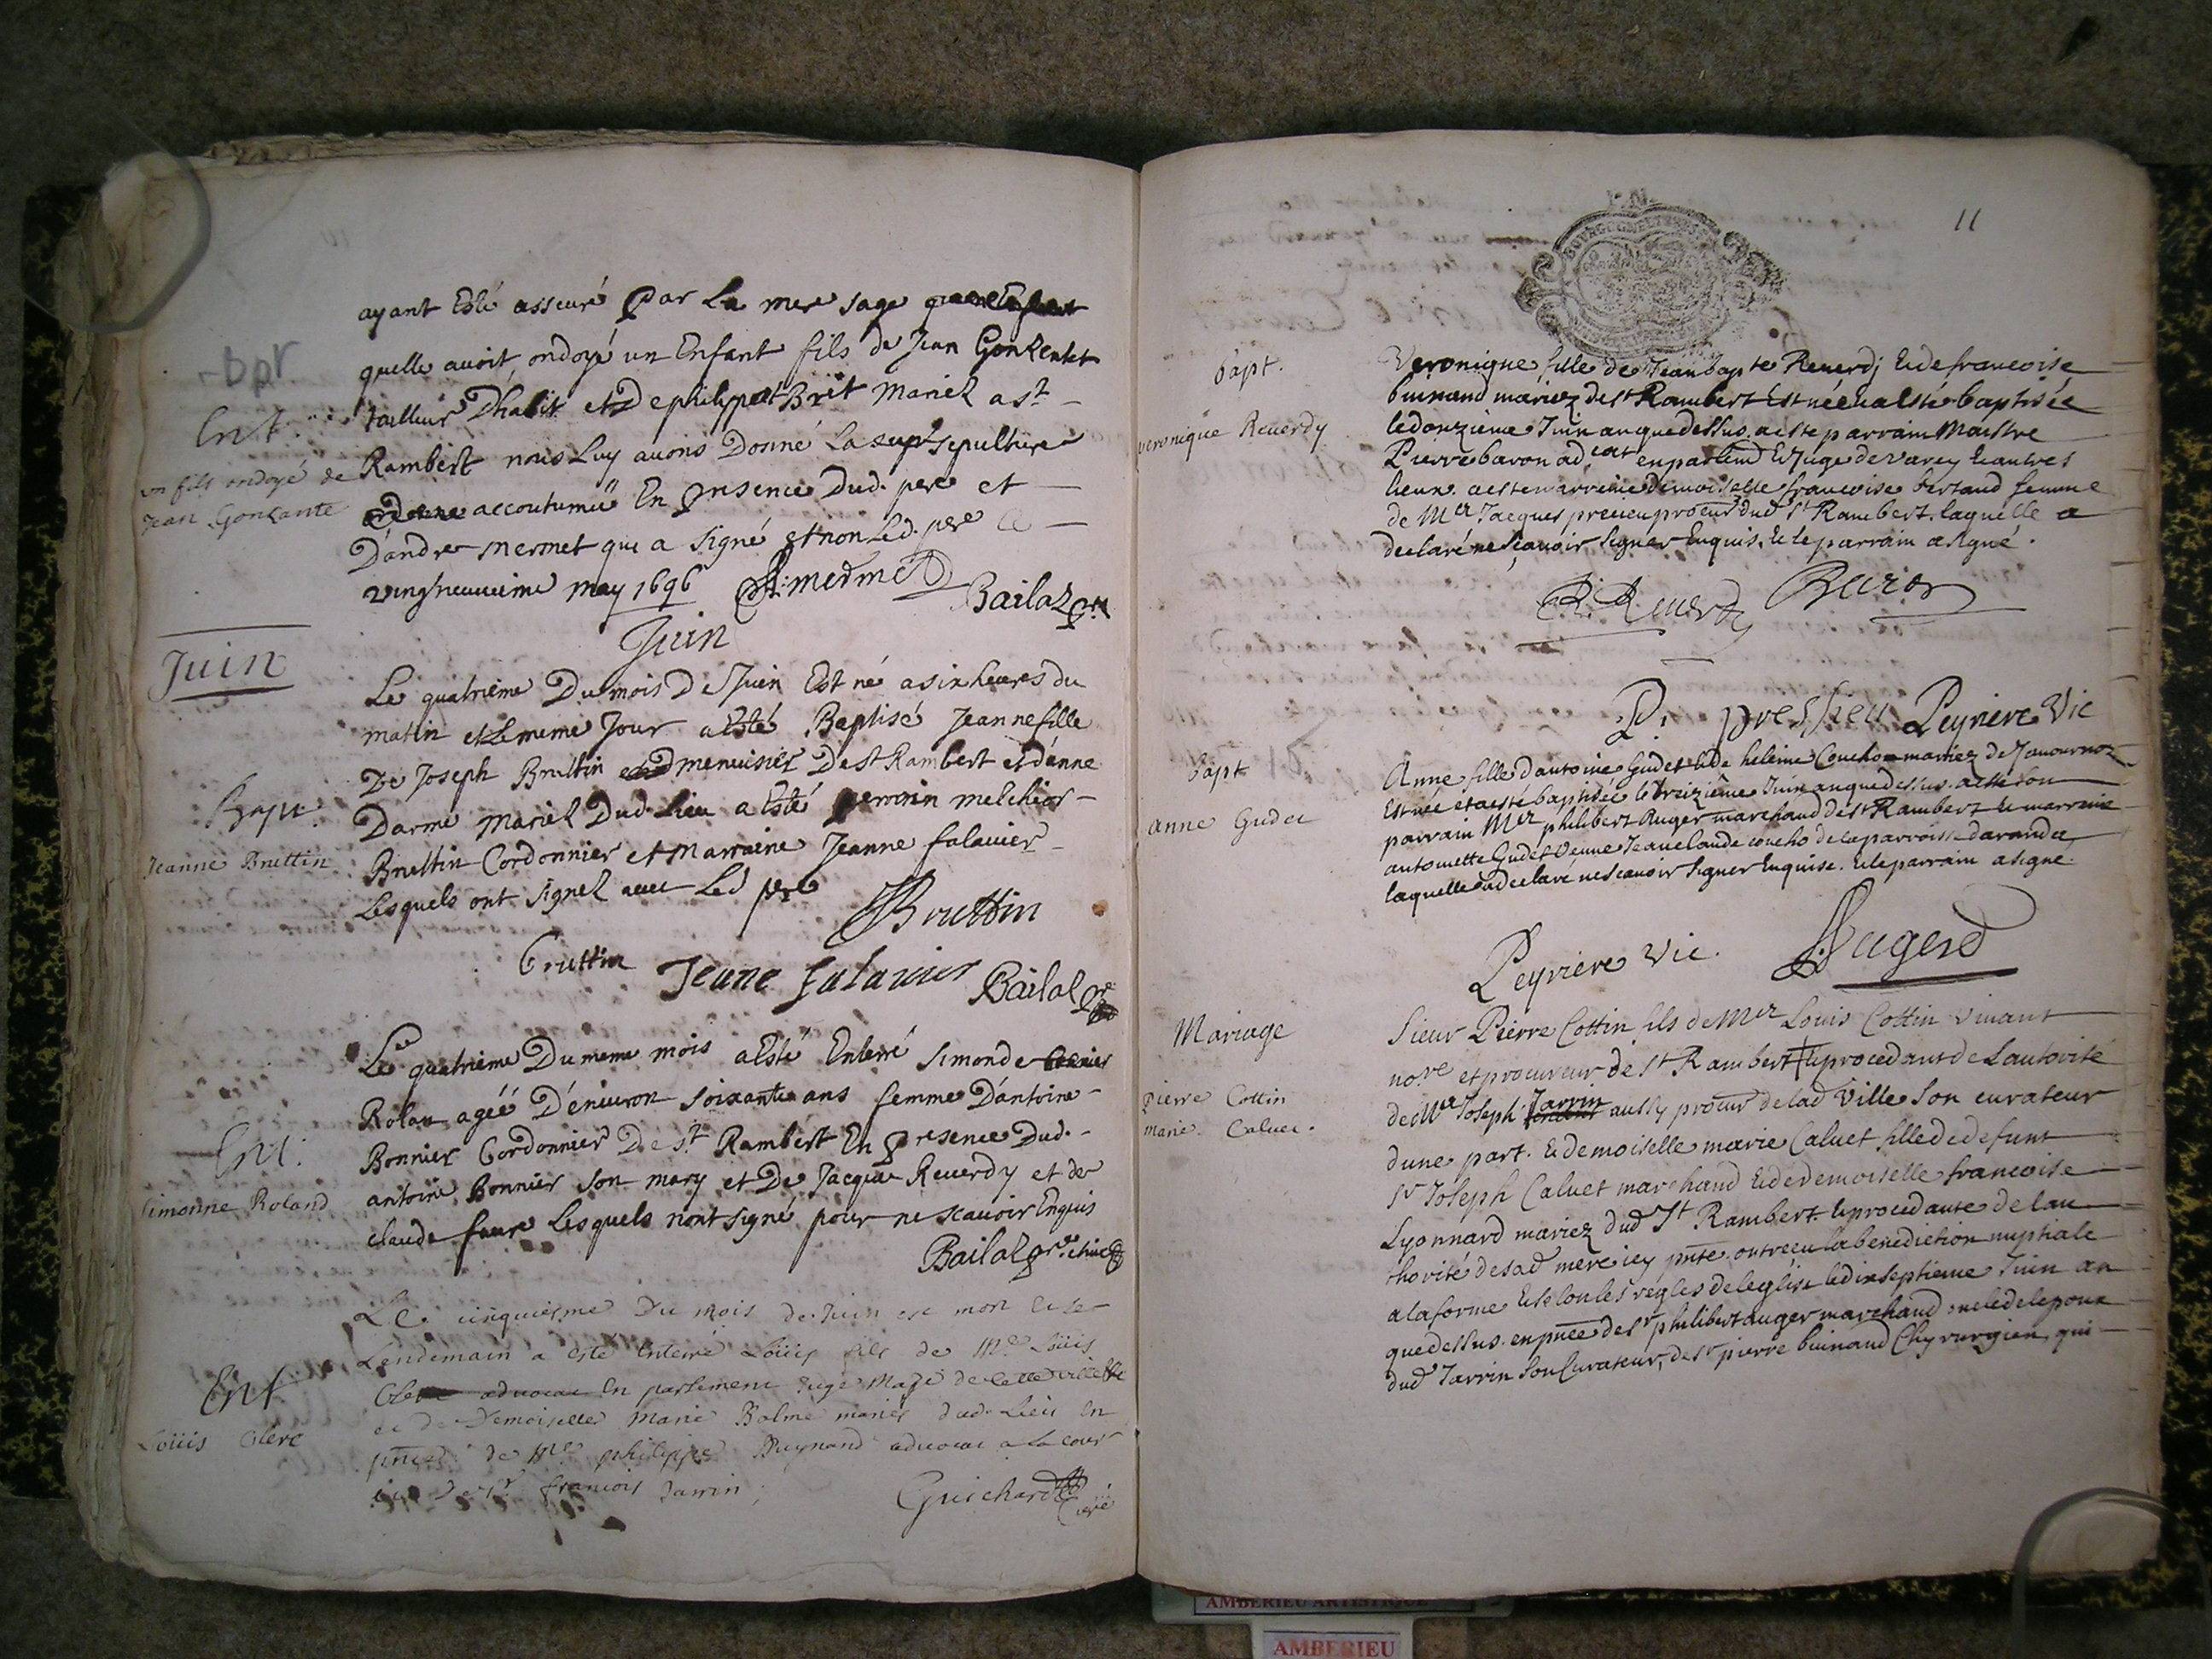 ayant Esté asseuré Par La mere sage
quelle avoit ondoyé un Enfant fils de Jean Gonzentet
bpt
Ent
tailleur Dhabit et De philippat Brit Mariez a st
un fils ondoyé de
Jean Gonzante
Rambert nous Luy avons Donné La sepulture
accoutumée En presence Dud. pere et
Dandre mermet qui a signé et non Led. pere ce
vingneuvieme may 1696 A: mermet Bailaz
Juin
Juin
Le quatrieme Du mois De Juin Est né a six heures du
matin et Le meme Jour a Esté Baptisé Jeanne fille
De Joseph Bruttin menuisier De st Rambert et danne
Bapt.
Jeanne Bruttin
Darme Mariez Dud. Lieu a Esté perrain melchior
Bruttin Cordonnier et Marraine Jeanne falavier
Lesquels ont signez avec Led pere
JBruttin
Bruttin Jeane falavier Bailaz
Le quatrieme Du meme mois a Esté Enterré Simonde
Rolan agéé D'environ soixante ans femme D'antoine
Ent.
Simonne Roland
Bonnier Cordonnier De st. Rambert En presence Dud.
antoine Bonnier son mary et De Jacque Reverdy et de
claude faure Lesquels nont signé pour ne scavoir Enquis
Bailaz
Le cinquiesme Du mois de Juin est mort et le
Lendemain a esté enterré Loüis fils de Me. Loüis
Ent
Loüis Clerc
Clerc advocat En parlement Juge Maje de cette ville
et de Demoiselle Marie Balme mariés dud. Lieu en
pnce de Me philippe Buynand advocat a la cour
et de Sr. francois Jarrin;
Guichard Curé
11
bapt.
veronique Reverdy
Veronique fille de Jean bapte Reverdj et de francoise
buinand mariez de st Rambert Est née et a esté baptisée
le douzieme Juin an que dessus. a esté parrain Maistre
Pierre baron adcat en parlemt et Juge de varey et autres
lieux. a esté marreine demoiselle francoise bertaud femme
de Mer Jacques procur dud st Rambert. laquelle a
declaré ne scavoir signer Enquis. et le parrain a signé.
R. Reverdy Baron
P. presfieu Peyriere Vic
bapt
Anne Gudet
Anne fille d'antoine Gudet et de heleine Coucho mariez de Javournoz
Est née et a esté baptisée le treizieme Juin an que dessus. a esté son
parrain Mer philibert Auger marchand de st Rambert et marreine
antoinette Gudet veuve Jean claude coucho de la parroisse d'aranda
laquelle a declaré ne scavoir signer Enquise. et le parrain a signé.
Peyriere Vic. Augerd
Mariage
Pierre Cottin
marie. Calvet.
Sieur Pierre Cottin fils de Mer Louis Cottin vivant
nore et procureur de st Rambert procedant de Lautorité
de Mer Joseph Jarrin aussy procur de lad ville son curateur
dune part. et demoiselle marie Calvet fille de defunt
sr Joseph Calvet marchand et de demoiselle francoise
Lyonnard mariez dud St Rambert. et procedante de lau
thorité de sad mere icy pnte ont receu la benediction nuptiale
a la forme et selon les regles de leglise le dix septieme Juin an
que dessus. en pnce de sr philibert auger marchand oncle de lepoux
dud Jarrin son curateur, de sr pierre buinand Chyrurgien qui
AMBERIEU ARTISTIQUE
AMBERIEU